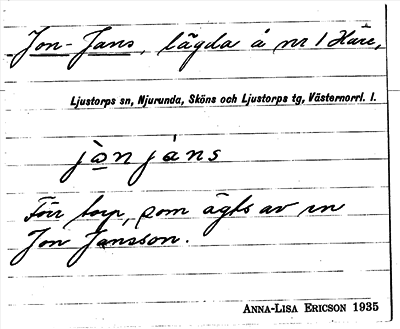 Jon-Jans, lägda å nr 1 Häre,
Ljustorps sn, Njurunda, Sköns och Ljustorps tg, Västernorrl. l.
jòn jáns
Förr torp, som ägts av en
Jon Jansson.
ANNA-LISA ERICSON 1935